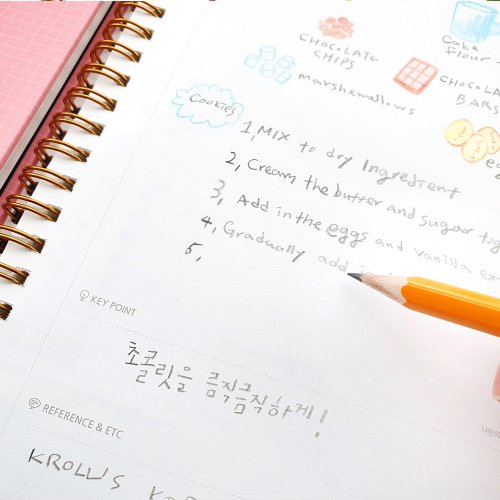 CHOCOLATE
CHIPS
Cake
Flour
marshmellows
CHOCOLA
BARS
Cookies
1, MIX to dry Ingredient
2, Cream the butter and sugar tog
3, Add in the eggs and vanilla ex
4, Gradually add
5,
KEY POINT
초콜릿을 큼직큼직하게!
REFERENCE & ETC
나만의
KROLL'S